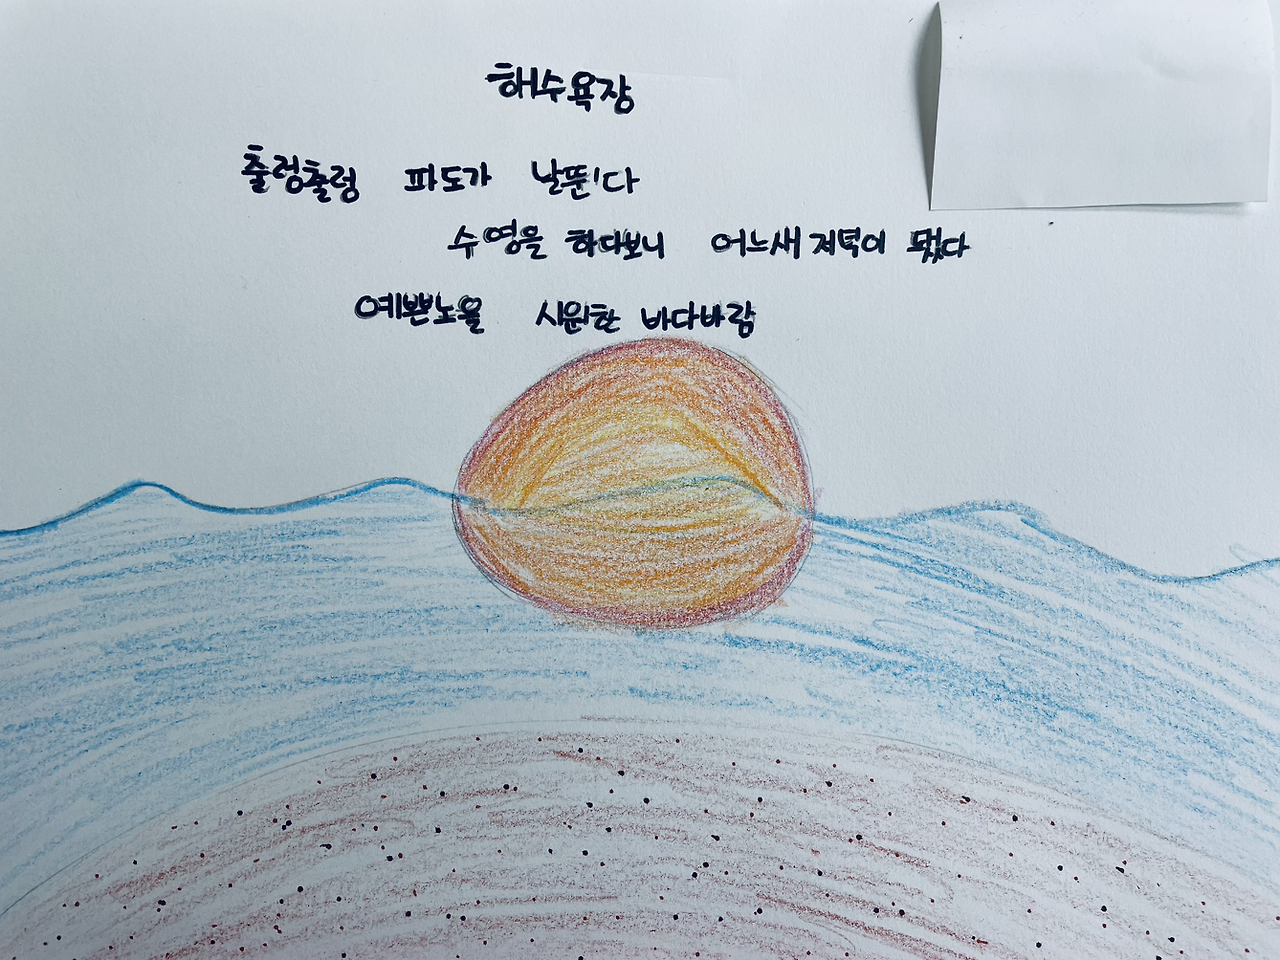 해수욕장
출렁출렁 파도가 날뛴다
수영을 하다보니 어느새 저녁이 됐다
예쁜노을 시원한 바다바람